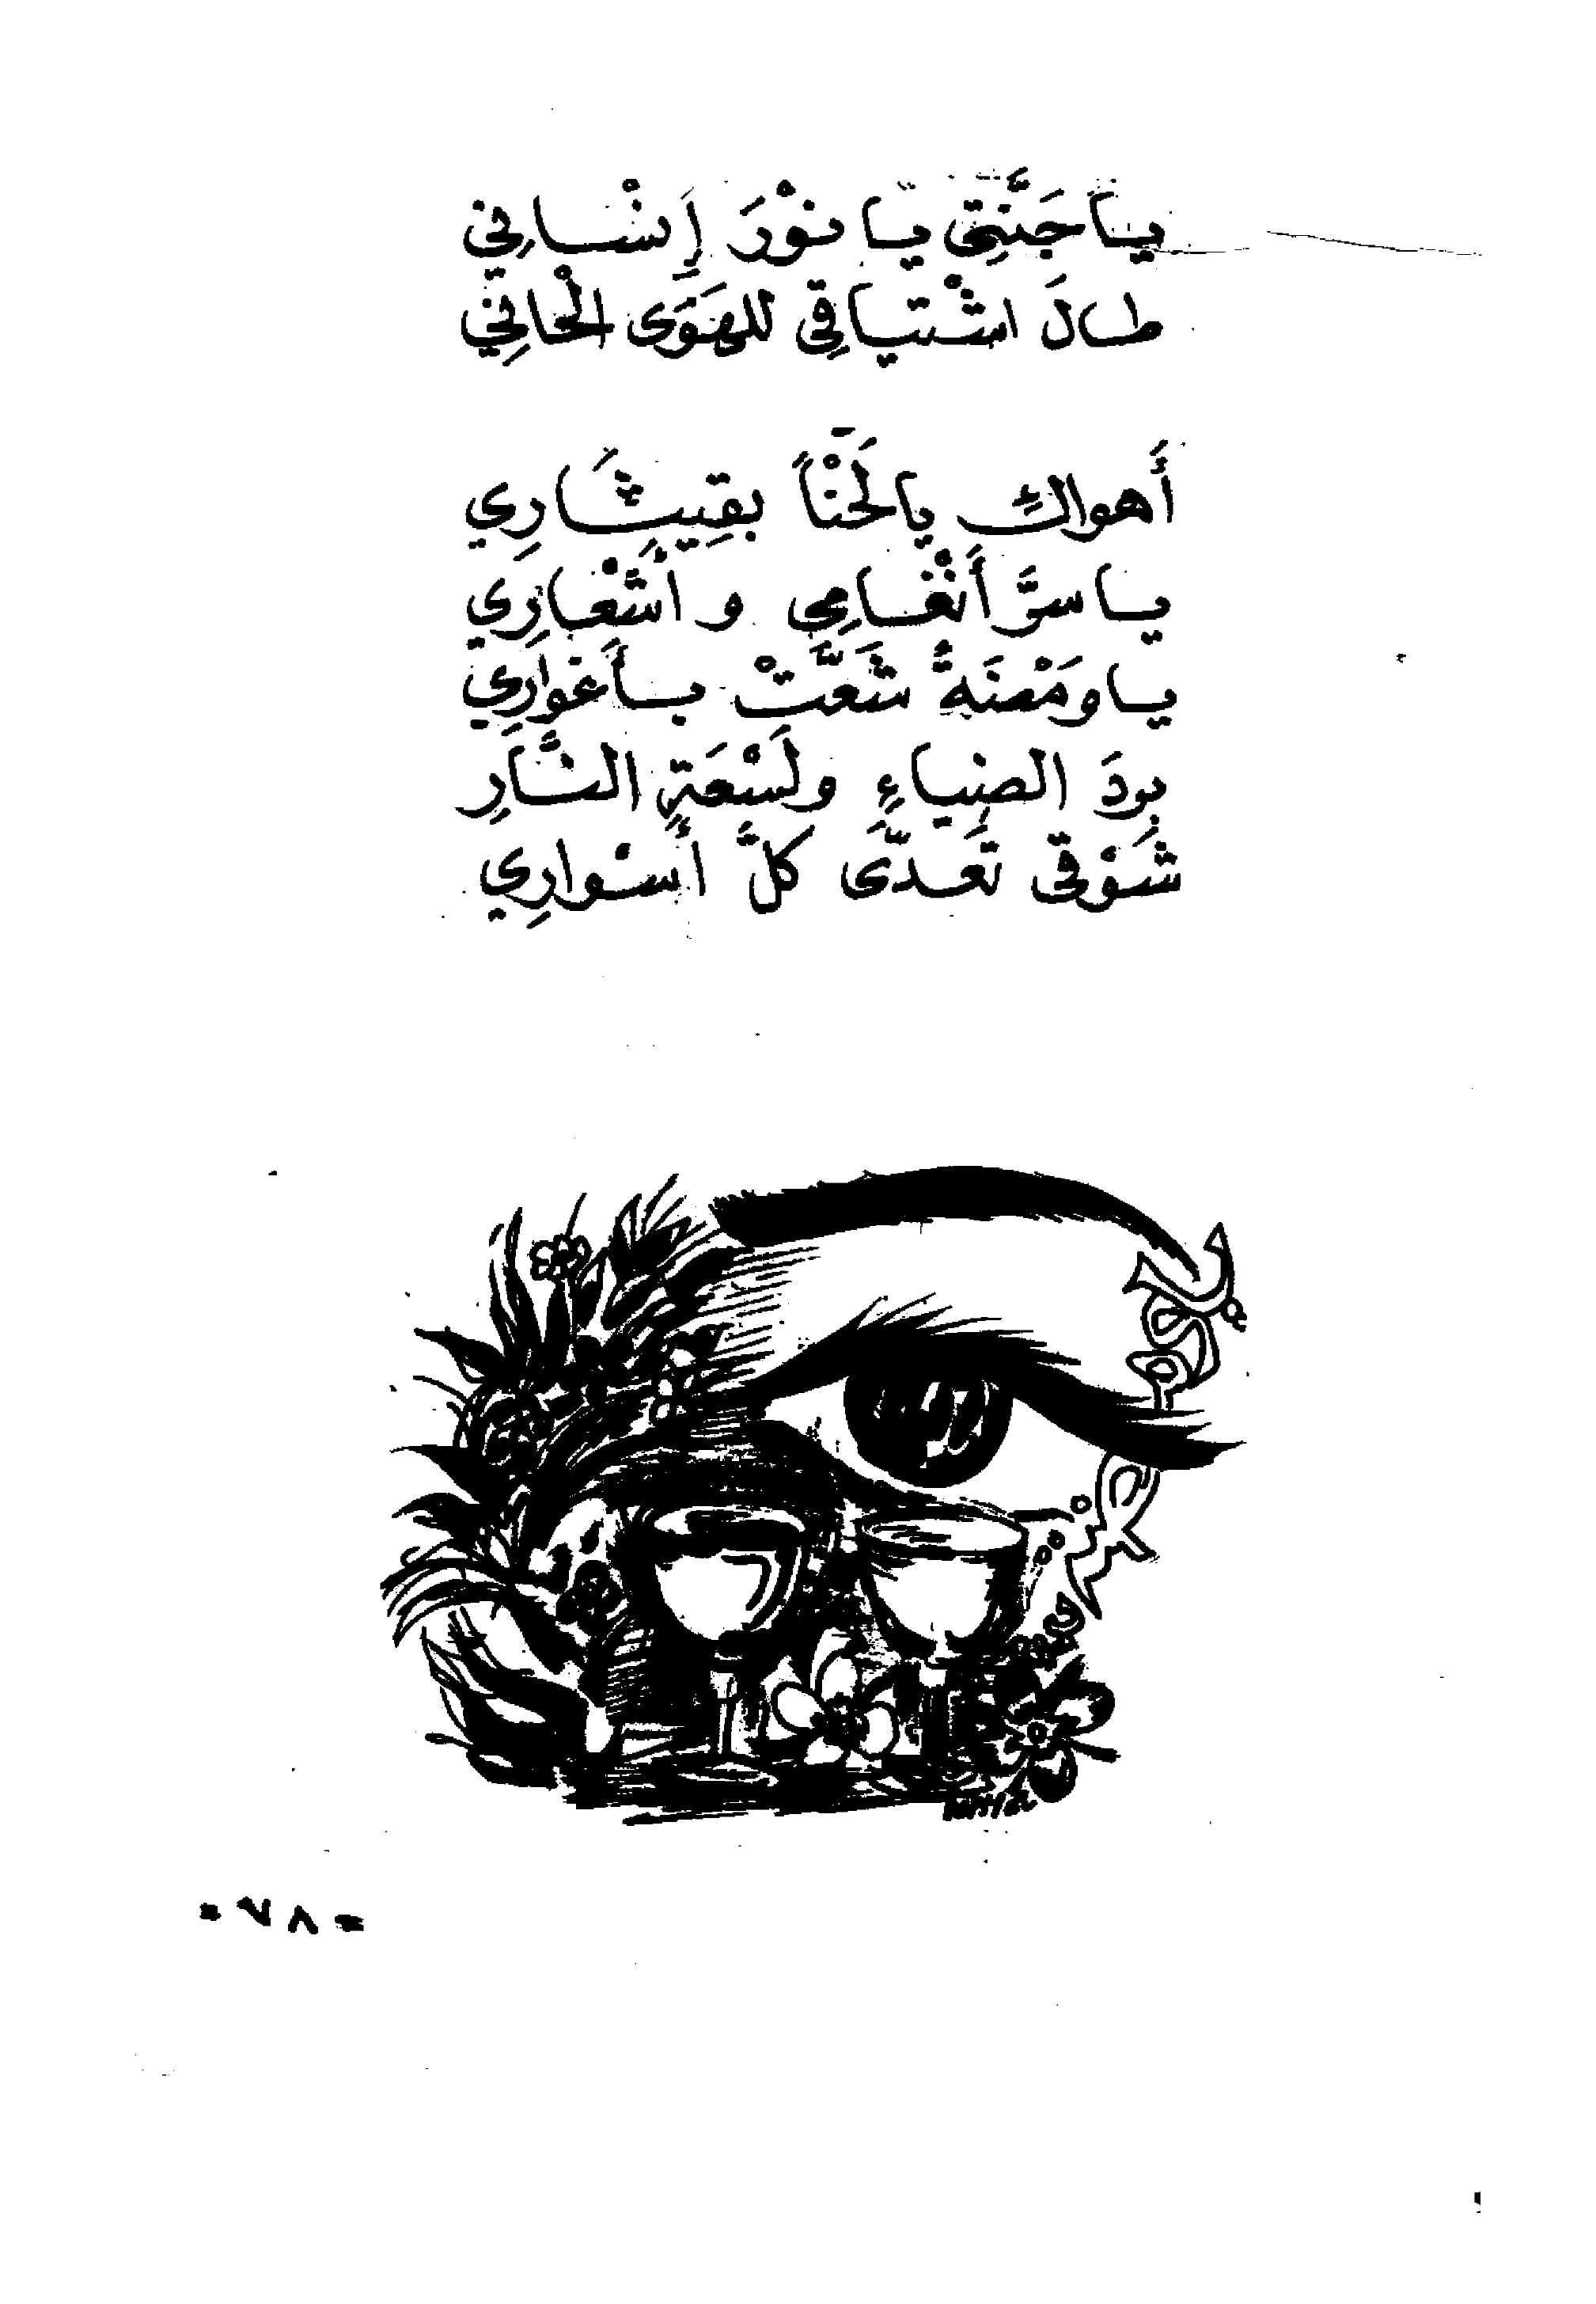 يا جَنَّتِي يا نوْرَ إِنْسانِي
طالَ اشْتياقِي للهَوَى الْحانِي
أَهواكِ يا لَحْناً بقِيثَارِي
يا سرَّ أَنْغامِي وأَشْعارِي
يا ومَضْنَةً شَعَّتْ بأَغوارِي
بردَ الضياءِ ولَسْعَةِ النَّارِ
شَوْقي تَعَدَّى كلَّ أَسْوارِي
= ٧٨ =